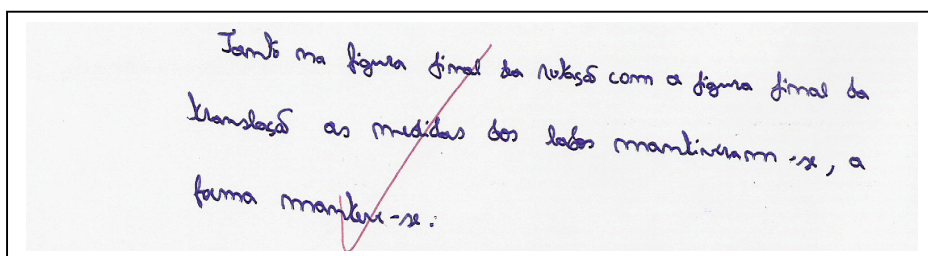 Tanto na figura final da rotação com a figura final da
translação as medidas dos lados mantiveram-se, a
forma manteve-se.